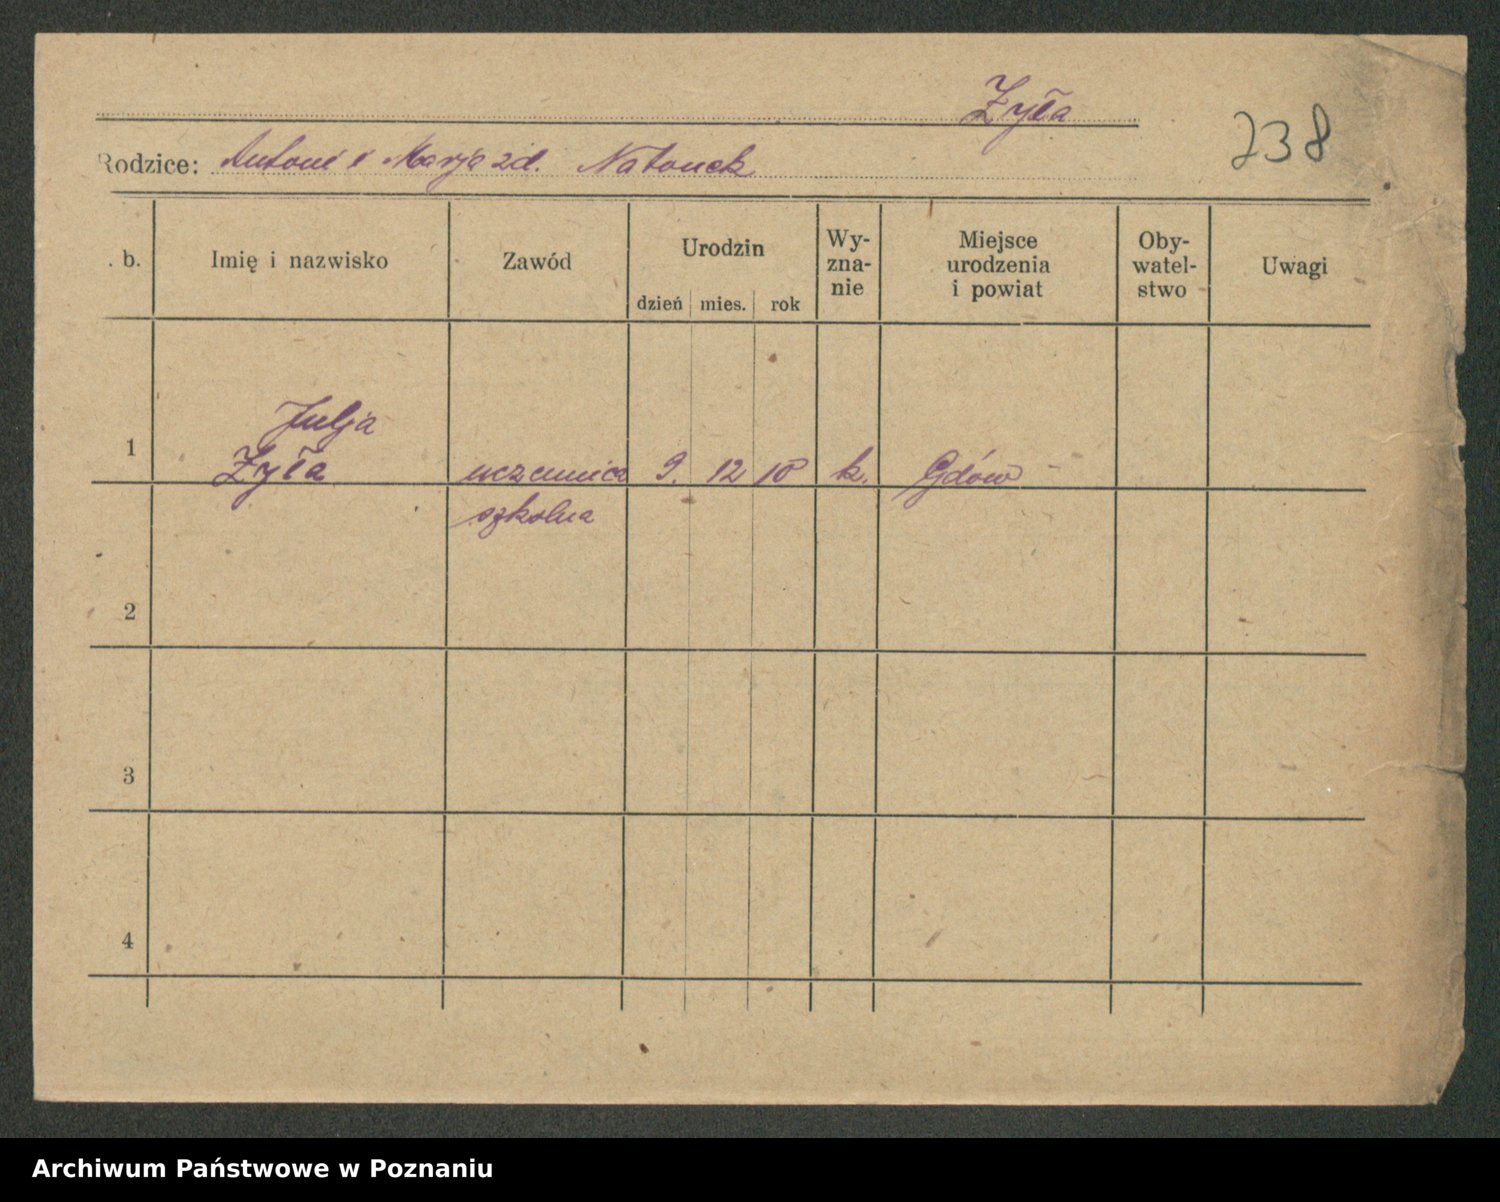 Żyła
738
Rodzice: Antoni i Marja zd. Natonek
. b.
Imię i nazwisko
Zawód
Urodzin
dzień mies. rok
Wy-
zna-
nie
Miejsce
urodzenia
i powiat
Oby-
watel-
stwo
Uwagi
Julja
1 Żyła uczennica 9. 12 10 k. Gdów
szkolna
2
3
4
Archiwum Państwowe w Poznaniu